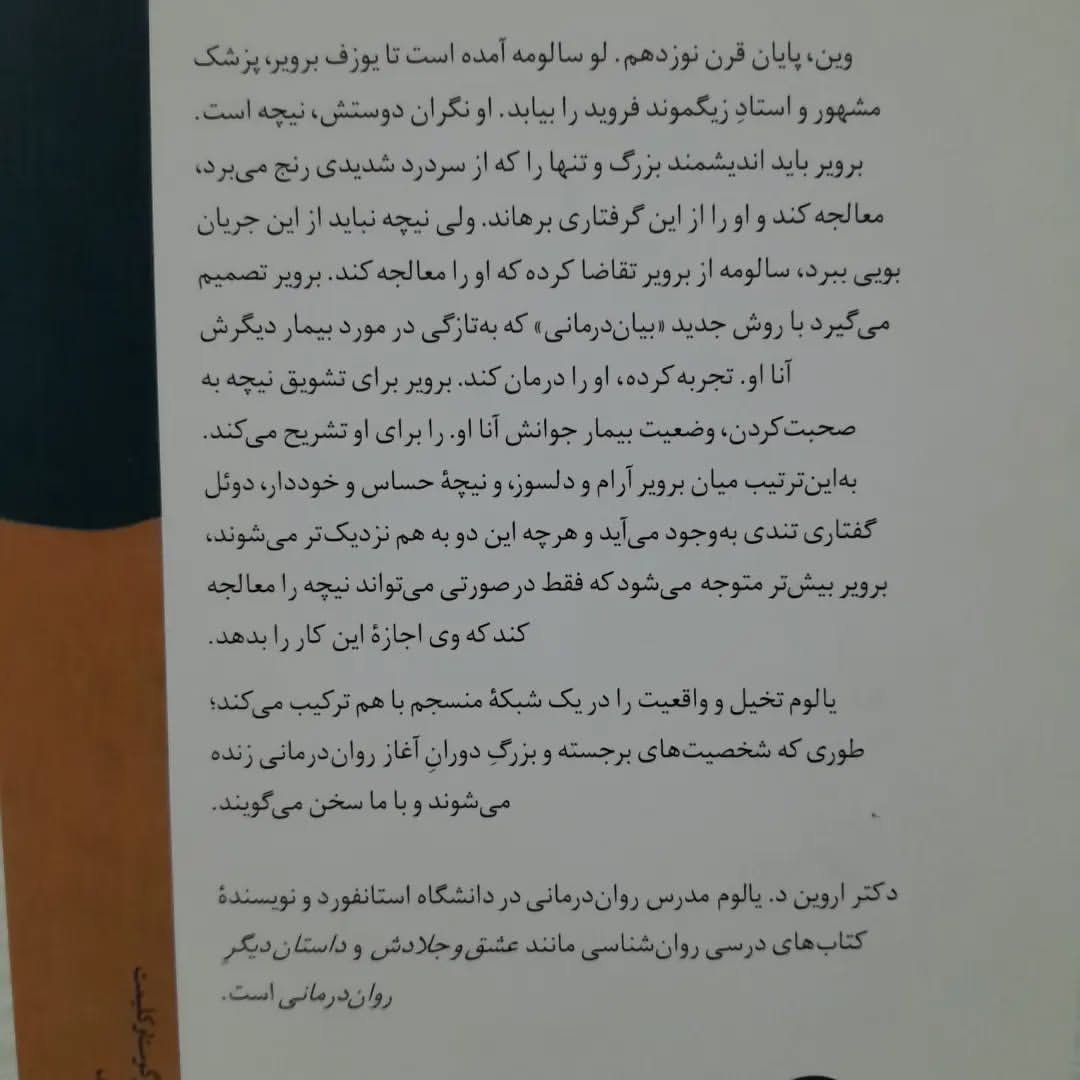 وین، پایان قرن نوزدهم. لو سالومه آمده است تا یوزف برویر، پزشک
مشهور و استادِ زیگموند فروید را بیابد. او نگران دوستش، نیچه است.
برویر باید اندیشمند بزرگ و تنها را که از سردرد شدیدی رنج می‌برد،
معالجه کند و او را از این گرفتاری برهاند. ولی نیچه نباید از این جریان
بویی ببرد، سالومه از برویر تقاضا کرده که او را معالجه کند. برویر تصمیم
می‌گیرد با روش جدید «بیان‌درمانی» که به‌تازگی در مورد بیمار دیگرش
آنا او. تجربه کرده، او را درمان کند. برویر برای تشویق نیچه به
صحبت‌کردن، وضعیت بیمار جوانش آنا او. را برای او تشریح می‌کند.
به‌این‌ترتیب میان برویر آرام و دلسوز، و نیچهٔ حساس و خوددار، دوئل
گفتاری تندی به‌وجود می‌آید و هرچه این دو به هم نزدیک‌تر می‌شوند،
برویر بیش‌تر متوجه می‌شود که فقط در صورتی می‌تواند نیچه را معالجه
کند که وی اجازهٔ این کار را بدهد.
یالوم تخیل و واقعیت را در یک شبکهٔ منسجم با هم ترکیب می‌کند؛
طوری که شخصیت‌های برجسته و بزرگِ دورانِ آغاز روان‌درمانی زنده
می‌شوند و با ما سخن می‌گویند.
دکتر اروین د. یالوم مدرس روان‌درمانی در دانشگاه استانفورد و نویسندهٔ
کتاب‌های درسی روان‌شناسی مانند عشق و جلادش و داستان دیگرِ
روان‌درمانی است.
گوستاو کلیمت